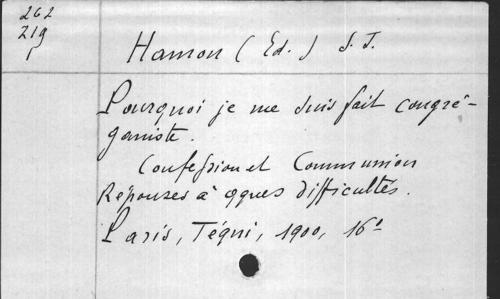 262
219
1
Hamon (Ed.) S. J.
Pourquoi je me suis fait congré-
ganiste.
Confession et Communion
Réponses à qques difficultés.
Paris, Téqui, 1900, 16°